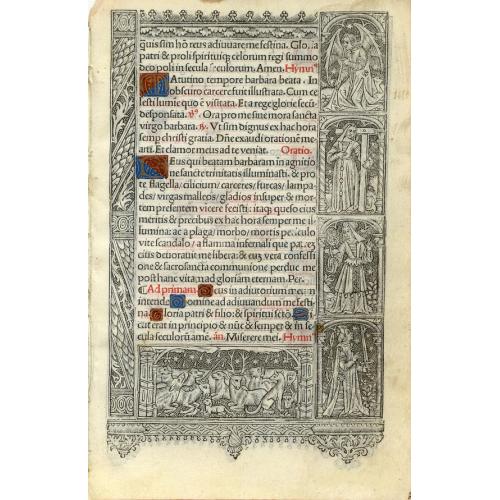 quis sim hō reus adiuuare me festina. Glo a
patri & proli spirituiq; celorum regi summo
deo poli in secula seculorum. Amen. Hymn⁹
Matutino tempore barbara beata. In
obscuro carcere fuit illustrata. Cum ce
lesti lumie quo ē visitata. Et a rege glorie
desponsata. Ora pro me sine mora sancta
virgo barbara. Vt sim dignus ex hac hora
semp christi gratia. Dñe exaudi orationē me
am. Et clamor meus ad te veniat. Oratio.
Deus qui beatam barbaram in agnitio
ne sancte trinitatis illuminasti: & pro
te flagella/ cilicium/ carceres/ furcas/ lampa
des/ virgas malleos/ gladios insuper & mor
tem presentem vicere fecisti: itaq; queso eius
meritis & precibus ex hac hora semper me il
lumina: ac a plaga/ morbo/ mortis periculo
vite scandalo/ a flamma infernali que
eius deuorauit me libera: & cum vera confessi
one & sacrosancta communione perduc me
post hanc vitā ad gloriam eternam. Per.
Ad primam. Deus in adiutorium meum
intende Domine ad adiuuandum me festi
na. Gloria patri & filio: & spiritui scto. Si
cut erat in principio & nūc & semper & in se
cula seculorū amē. an. Miserere mei. Hymn⁹